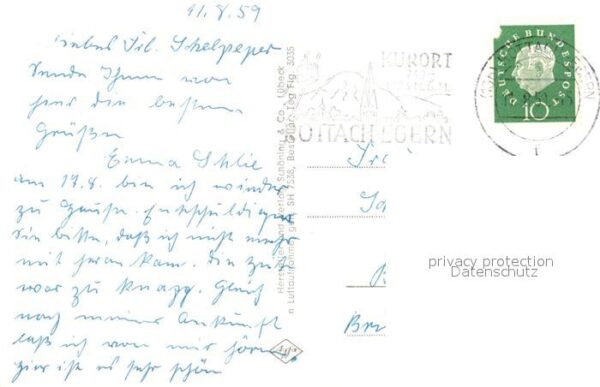 11.8.59
Liebes Frl. Schelpeper
Sende Ihnen von
hier die besten
Grüßen
Emma Schlie
am 17.8. bin ich wieder
zu Hause. Entschuldigen
Sie bitte, daß ich nicht mehr
mit ran kam. Die Zeit
war zu knapp. Gleich
nach meiner Ankunft
laß ich von mir hören
hier ist es sehr schön
Hersteller und Verlag: Schöning & Co., Lübeck
Luftaufnahme SH 7538, Bestell-Nr. Teg Flg. 3035
KURORT
ROTTACH-EGERN
DEUTSCHE BUNDESPOST
10
Br
privacy protection
Datenschutz